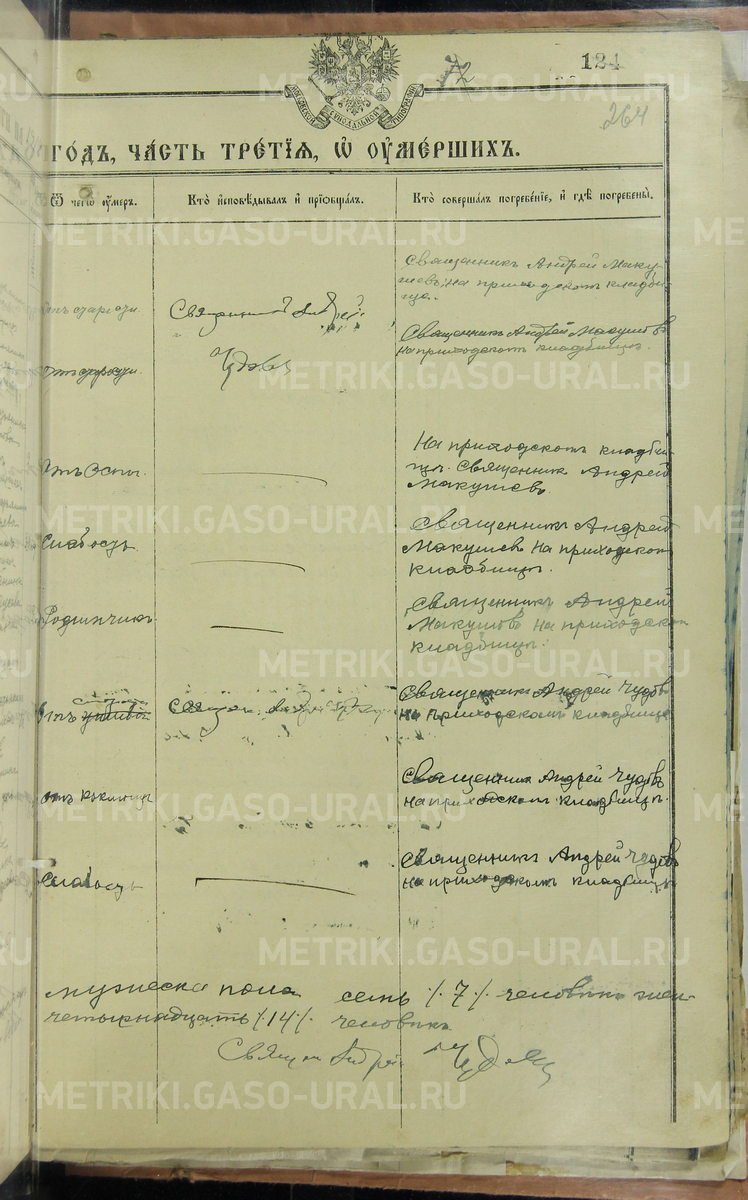 124
72
264
МОСКОВСКОЙ СУНОДАЛЬНОЙ ТИПОГРАФІИ
ГО́ДЪ, ЧА́СТЬ ТРЕ́ТІЯ, Ѡ҆ ОУ҆МЕ́РШИХЪ.
Ѿ чегѡ̀ оу҆́меръ.
Кто̀ и҆сповѣ́дывалъ и҆ прїѡбща́лъ.
Кто̀ соверша́лъ погребе́нїе, и҆ гдѣ̀ погребены̀.
отъ старости
Священникъ Андрей
Чудовъ
Священникъ Андрей Маку-
шевъ, на приходскомъ кладби-
ще.
отъ старости
Священникъ Андрей Макушевъ
на приходскомъ кладбищѣ.
отъ Оспы.
На приходскомъ кладби-
щѣ. Священникъ Андрей
Макушевъ.
Слабость
Священникъ Андрей
Макушевъ на приходском
кладбищѣ.
Родимчикъ
Священникъ Андрей
Макушевъ на приходском
кладбищѣ.
отъ
Священ. Андрей
Священникъ Андрей Чудовъ
на приходскомъ кладбище
отъ коклюша
Священникъ Андрей Чудовъ
на приходскомъ кладбищѣ.
Слабость
Священникъ Андрей Чудовъ
на приходскомъ кладбищѣ
мужеска пола семь /. 7 /. человѣкъ жен-
четырнадцать /. 14 /. человѣкъ
Священ Андрей Чудовъ
METRIKI.GASO-URAL.RU